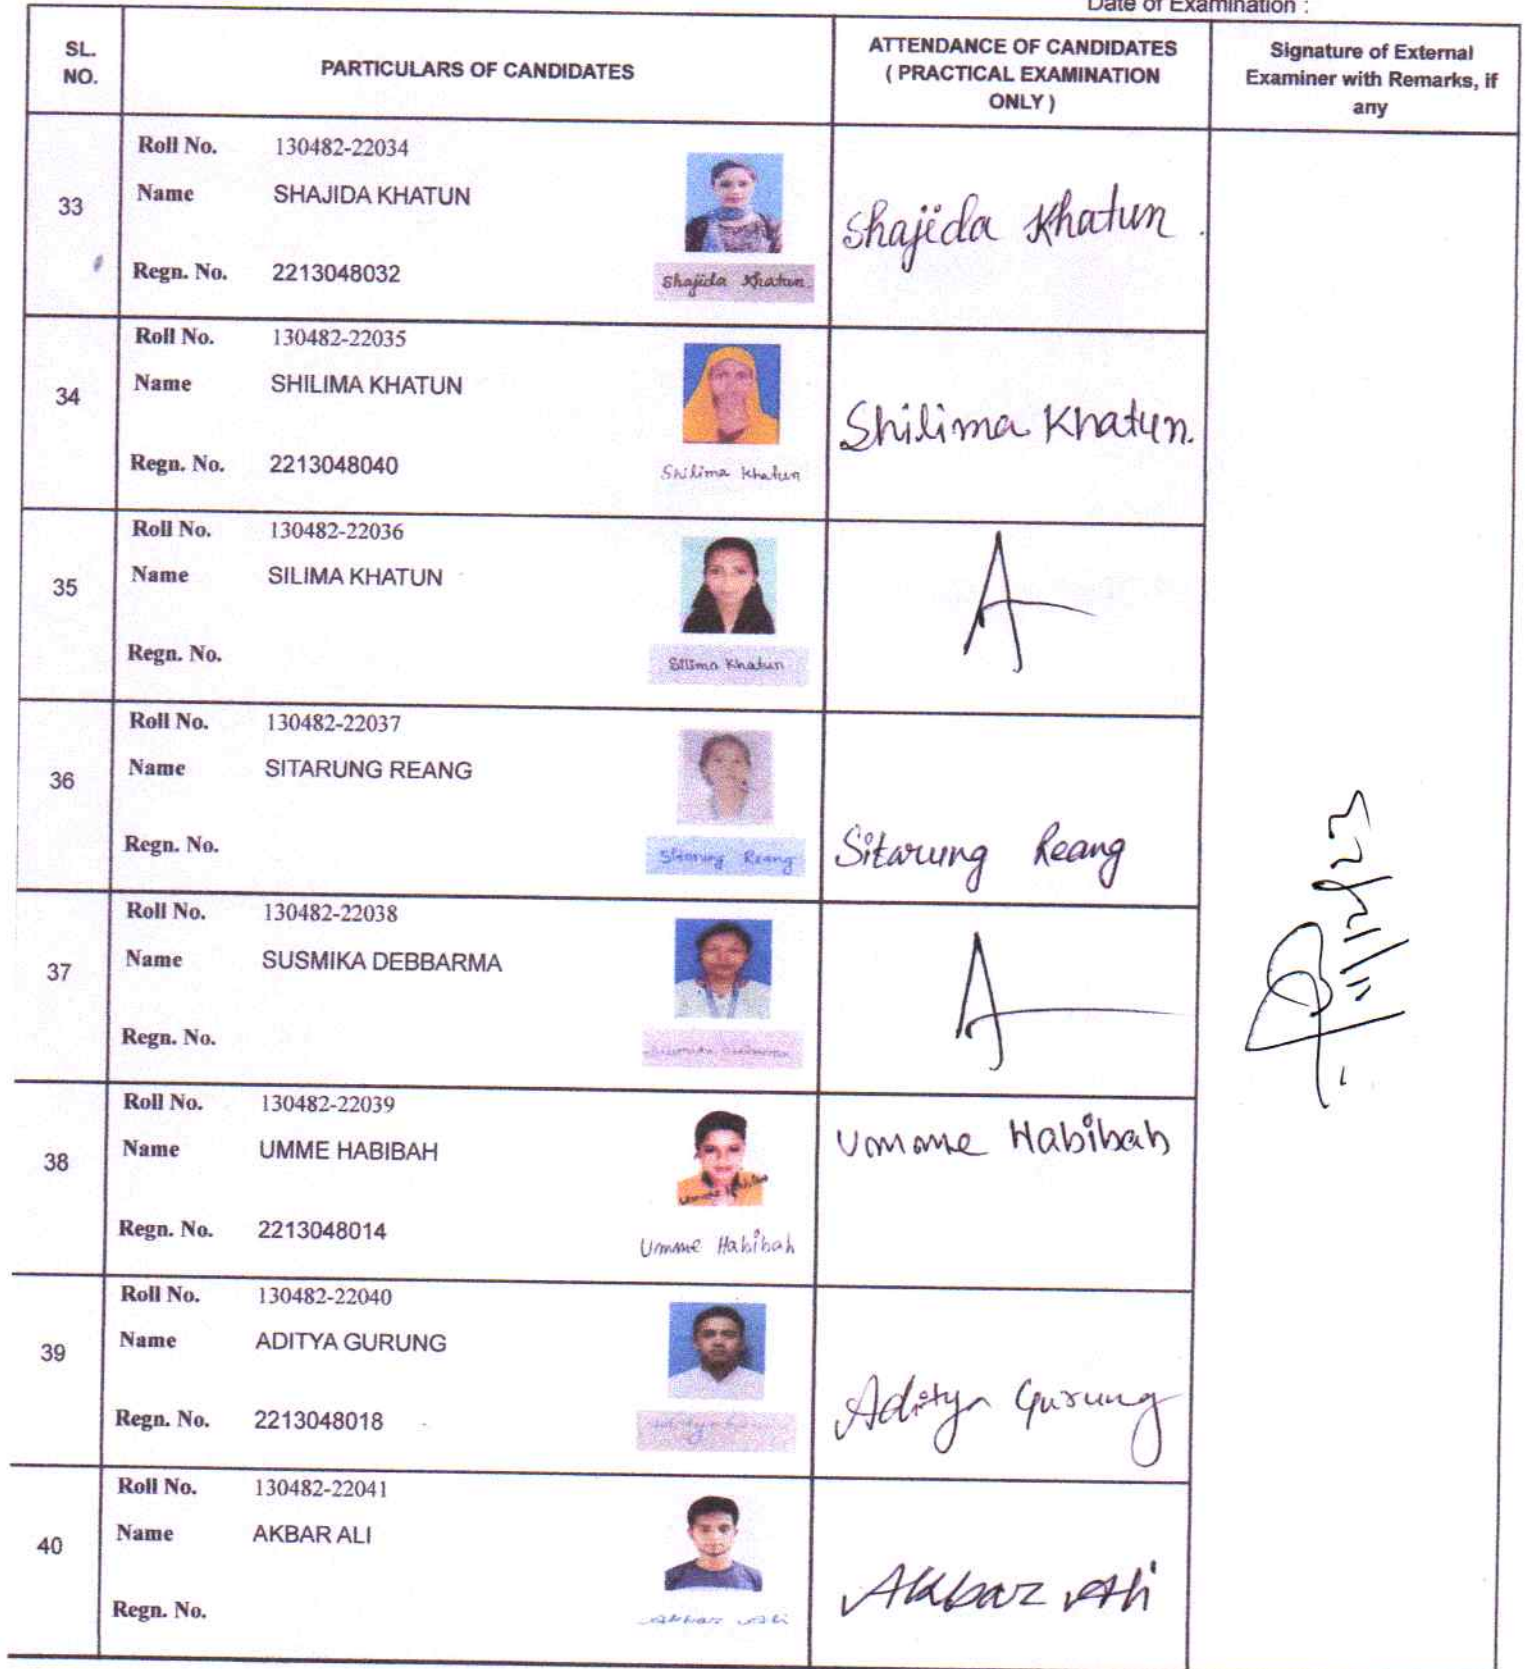 Date of Examination :
SL. NO.
PARTICULARS OF CANDIDATES
ATTENDANCE OF CANDIDATES
( PRACTICAL EXAMINATION
ONLY )
Signature of External
Examiner with Remarks, if
any
33
Roll No. 130482-22034
Name SHAJIDA KHATUN
Regn. No. 2213048032
Shajida Khatun
Shajida Khatun
34
Roll No. 130482-22035
Name SHILIMA KHATUN
Regn. No. 2213048040
Shilima Khatun
Shilima Khatun.
35
Roll No. 130482-22036
Name SILIMA KHATUN
Regn. No.
Silima Khatun
A
36
Roll No. 130482-22037
Name SITARUNG REANG
Regn. No.
Sitarung Reang
Sitarung Reang
37
Roll No. 130482-22038
Name SUSMIKA DEBBARMA
Regn. No.
A
38
Roll No. 130482-22039
Name UMME HABIBAH
Regn. No. 2213048014
Umme Habibah
Umme Habibah
39
Roll No. 130482-22040
Name ADITYA GURUNG
Regn. No. 2213048018
Aditya Gurung
40
Roll No. 130482-22041
Name AKBAR ALI
Regn. No.
Akbar Ali
Akbar Ali